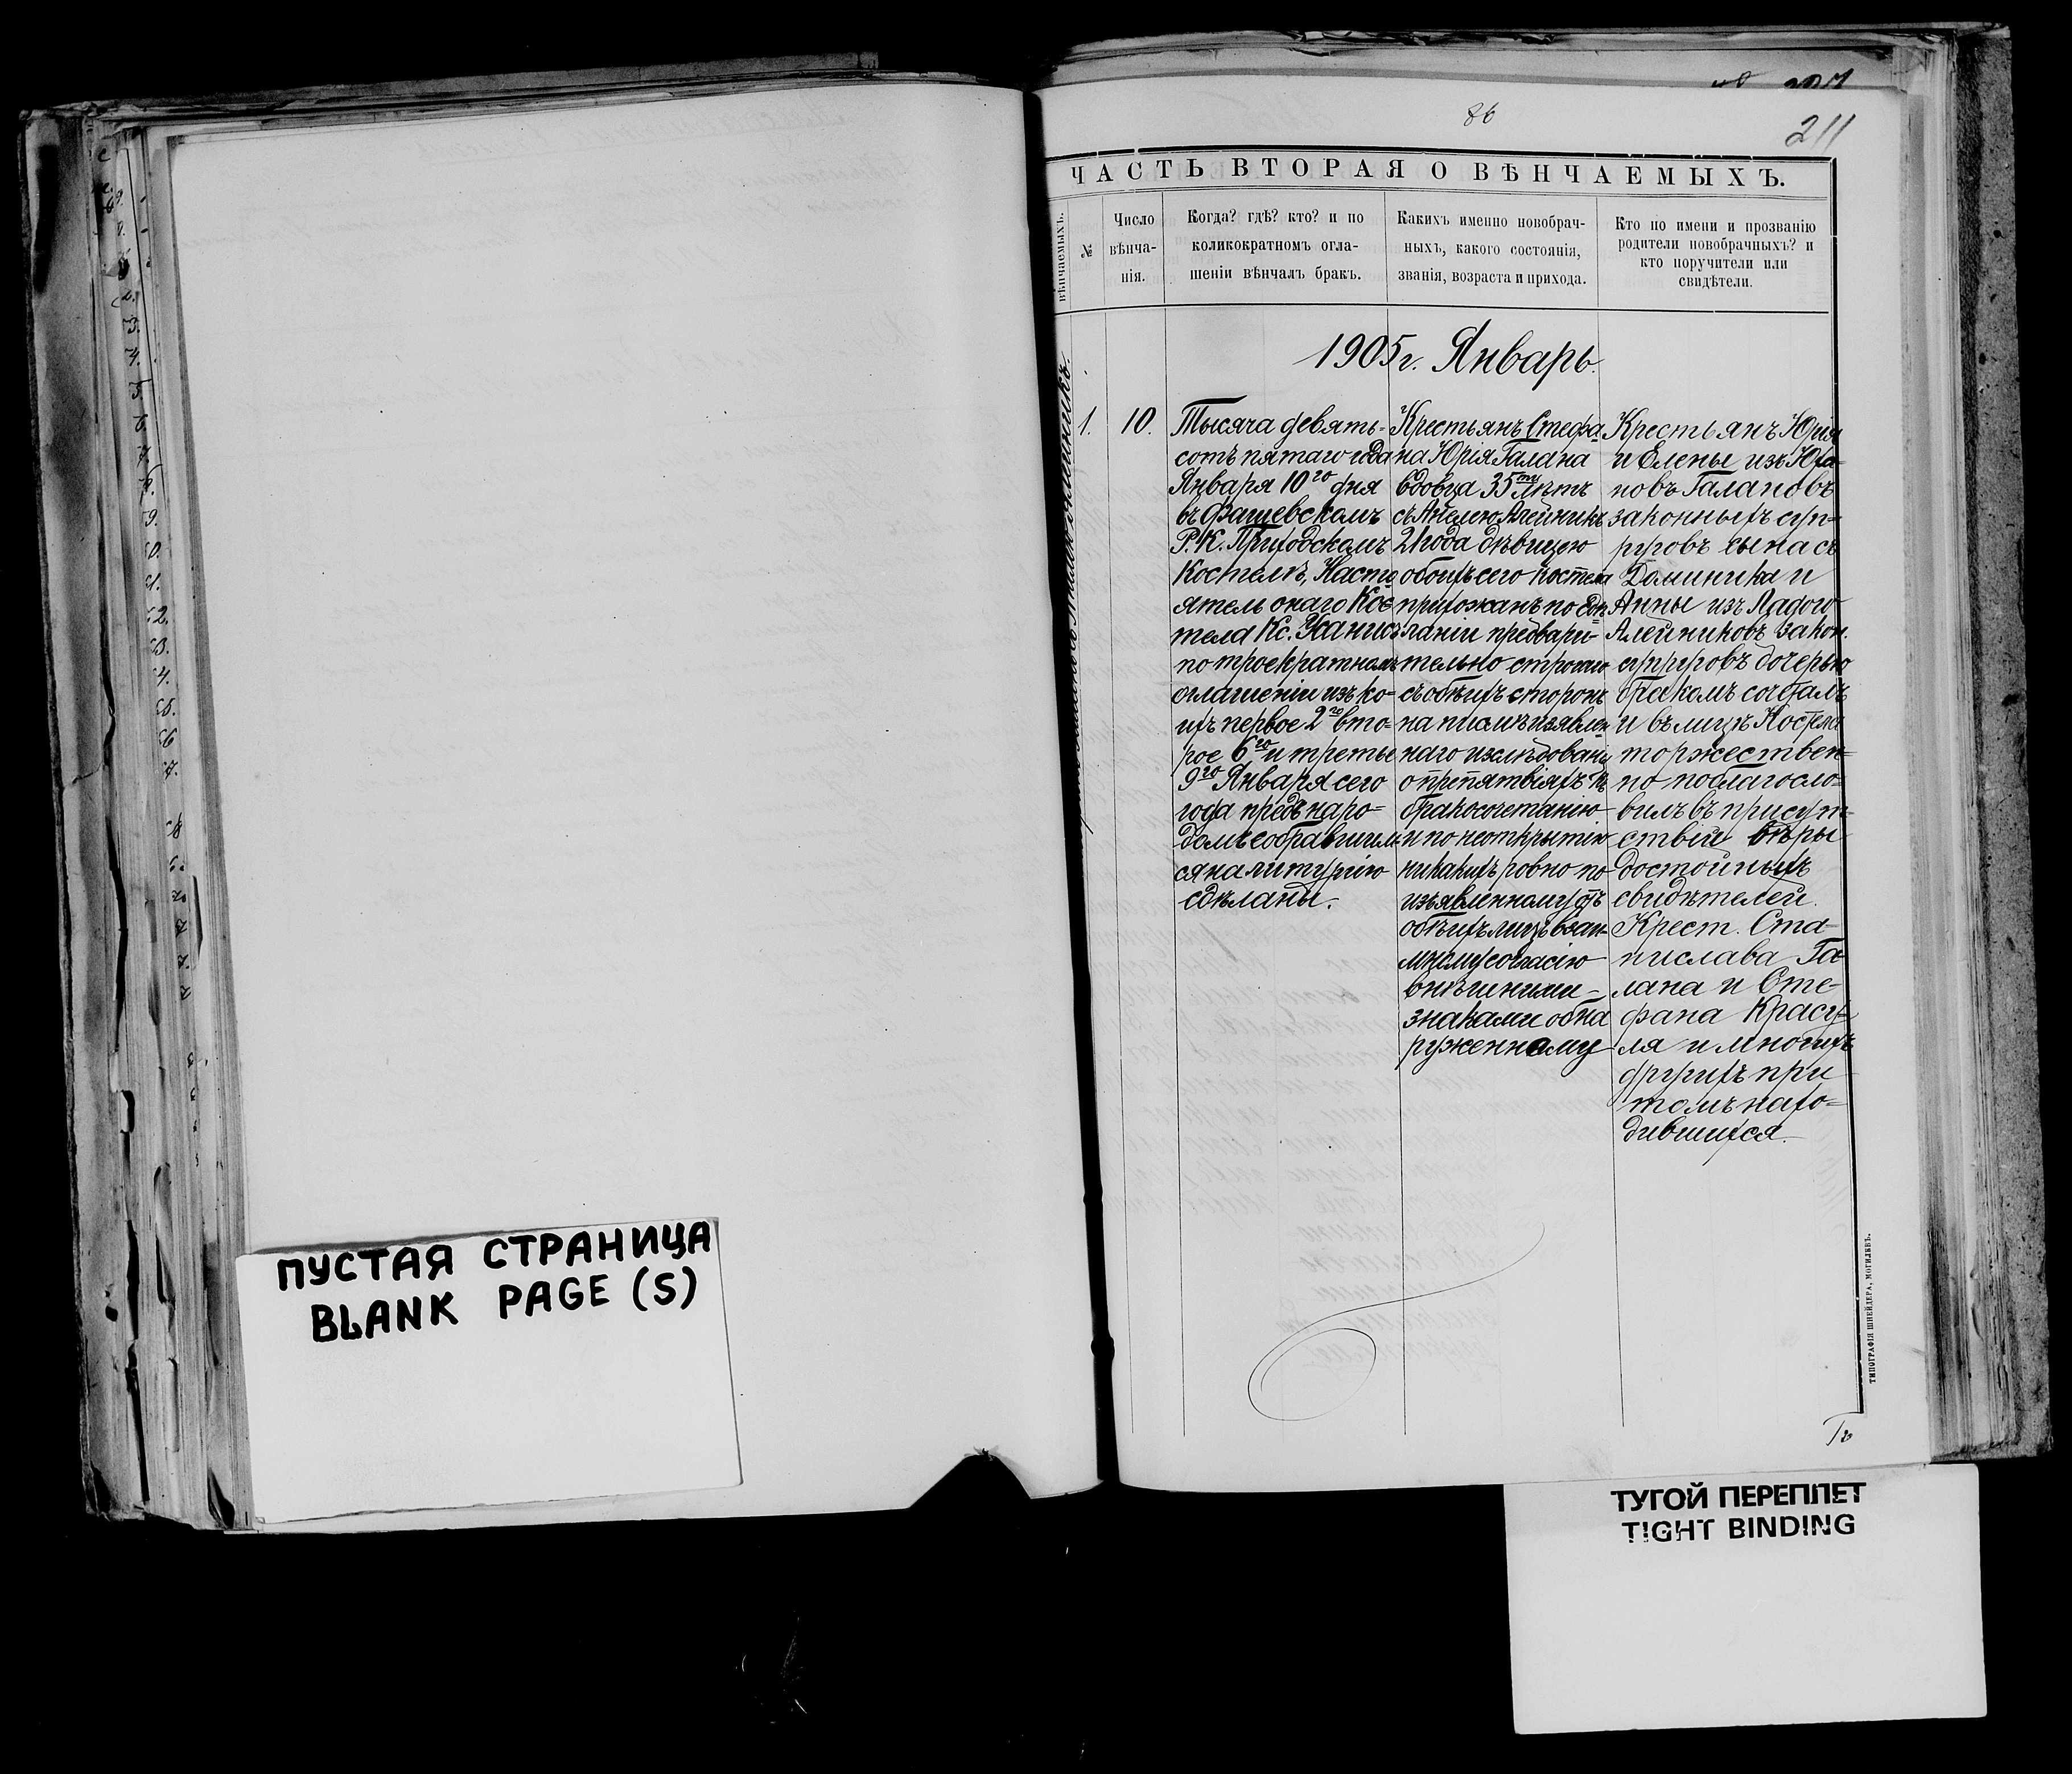 ПУСТАЯ СТРАНИЦА
BLANK PAGE (S)
86
211
ЧАСТЬ ВТОРАЯ О ВѢНЧАЕМЫХЪ.
вѣнчаемыхъ.
№
Число
вѣнча-
нія.
Когда? гдѣ? кто? и по
коликократномъ огла-
шеніи вѣнчалъ бракъ.
Какихъ именно новобрач-
ныхъ, какого состоянія,
званія, возраста и прихода.
Кто по имени и прозванію
родители новобрачныхъ? и
кто поручители или
свидѣтели.
1905 г. Январь.
1.
10.
Тысяча девять-
сотъ пятаго года
Января 10го дня
въ Фащевскомъ
Р. К. Приходскомъ
Костелѣ, Насто
ятель онаго Кос
тела Кс.
по троекратномъ
оглашеніи изъ ко-
ихъ первое 2го вто-
рое 6го и третье
9го Января сего
года предъ наро-
домъ собравшим
ся на литургію
сдѣланы.
Крестьянъ Стефа
на Юрія Галана
вдовца 35ти лѣтъ
съ Анелею Алейникъ
21 года дѣвицею
обоихъ сего костела
прихожанъ по сдѣ
ланіи предвари-
тельно строгаго
съ обѣихъ сторонъ
на письмѣ изъявлен
наго изслѣдованія
о препятвіяхъ къ
бракосочетанію
и по неоткрытію
никакихъ ровно по
изъявленному отъ
обѣихъ лицъ взаи-
мному согласію
внѣшними
знаками обна
руженному
Крестьянъ Юрія
и Елены изъ Юха-
новъ Галановъ
законныхъ суп-
руговъ сына съ
Доминика и
Анны изъ Ладого
Алейниковъ закон.
супруговъ дочерью
бракомъ сочеталъ
и въ лицѣ Костела
торжествен-
но поблагосло-
вилъ въ присут-
ствіи вѣры
достойныхъ
свидѣтелей.
Крест. Ста-
нислава Га-
лана и Сте-
фана Красу-
ля и многихъ
другихъ при
томъ нахо-
дившихся.
ТИПОГРАФІЯ ШНЕЙДЕРА, МОГИЛЕВЪ.
ТУГОЙ ПЕРЕПЛЕТ
TIGHT BINDING